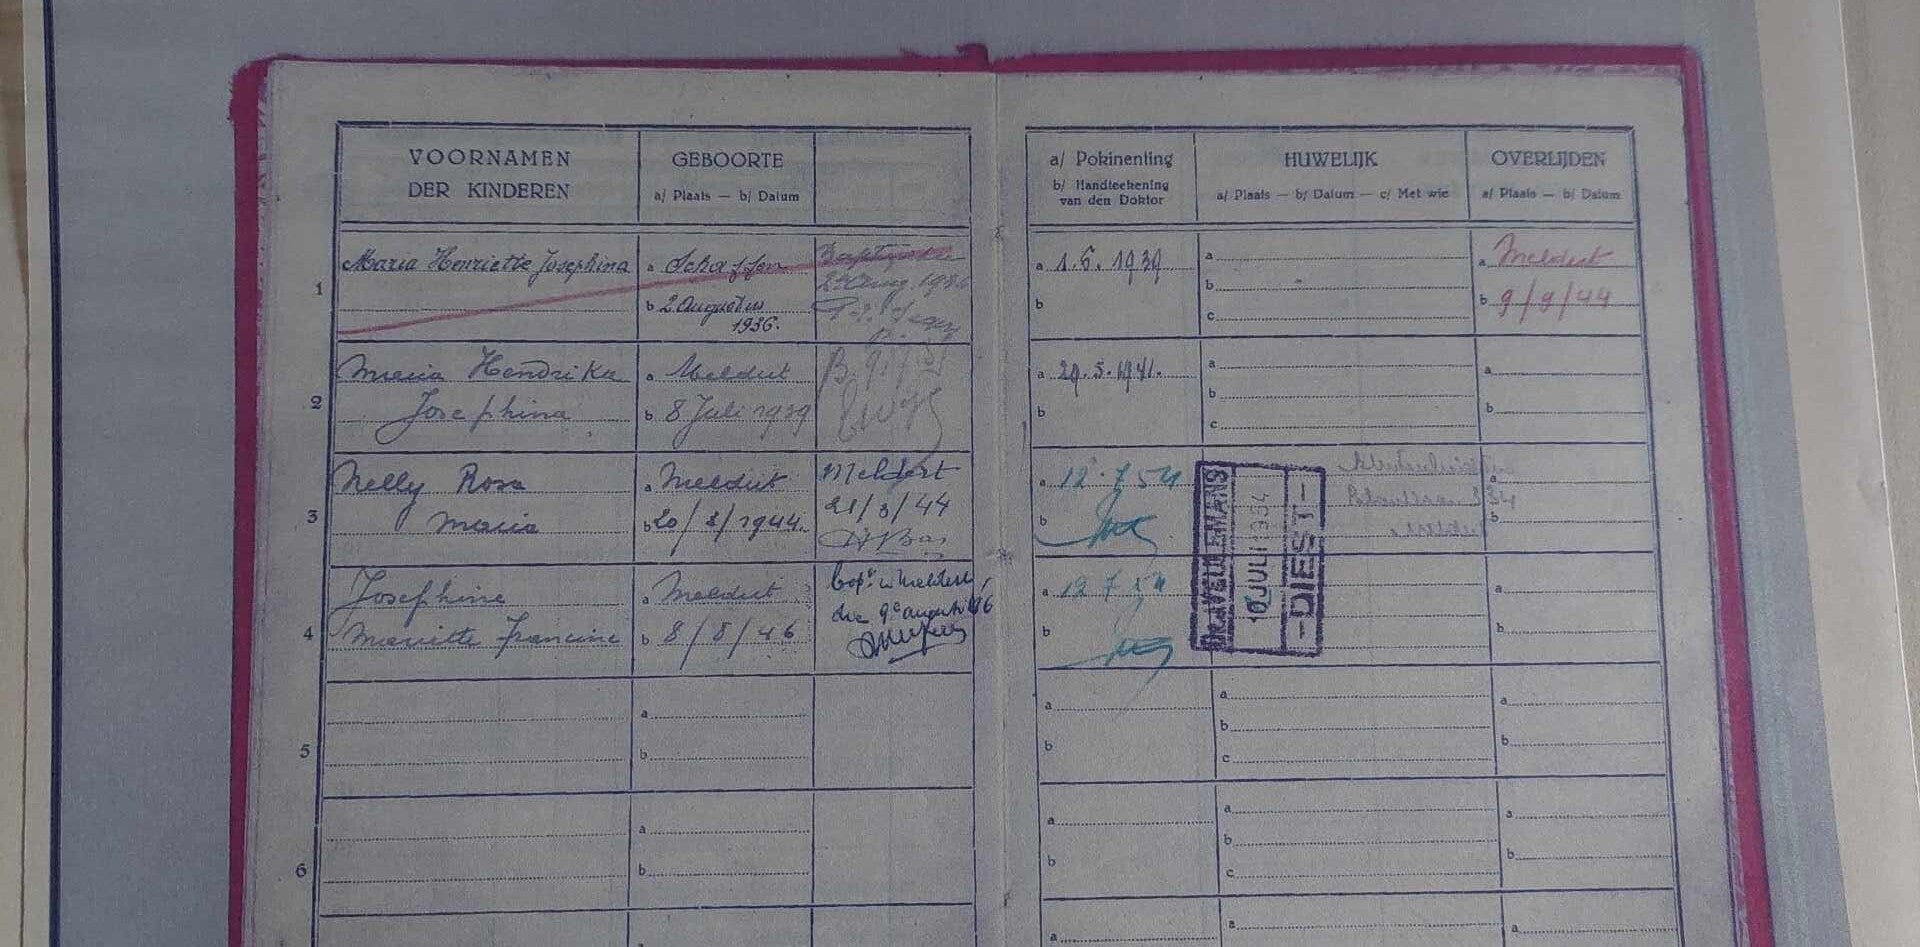 VOORNAMEN
DER KINDEREN
GEBOORTE
a/ Plaats — b/ Datum
a/ Pokinenting
b/ Handteekening
van den Doktor
HUWELIJK
a/ Plaats — b/ Datum — c/ Met wie
OVERLIJDEN
a/ Plaats — b/ Datum
1
Maria Henriette Josephina
a Schaffen
b 2 Augustus
1936.
a 1.6.1939
b
a
b
c
a Meldert
b 9/9/44
2
Maria Hendrika
Josephina
a Meldert
b 8 Juli 1939
a 29.5.1941.
b
a
b
c
a
b
3
Nelly Rosa
Maria
a Meldert
b 20/3/1944.
Meldert
21/3/44
a 12.7 54
b
a
b
4
Josephine
Mariette Francine
a Meldert
b 8/8/46
bapt. in Meldert
a 12 7 54
b
Dr. A. VEULEMANS
10 JULI 1954
— DIEST —
a
b
5
a
b
a
b
a
b
c
a
b
6
a
b
a
b
a
b
c
a
b
a
a
a